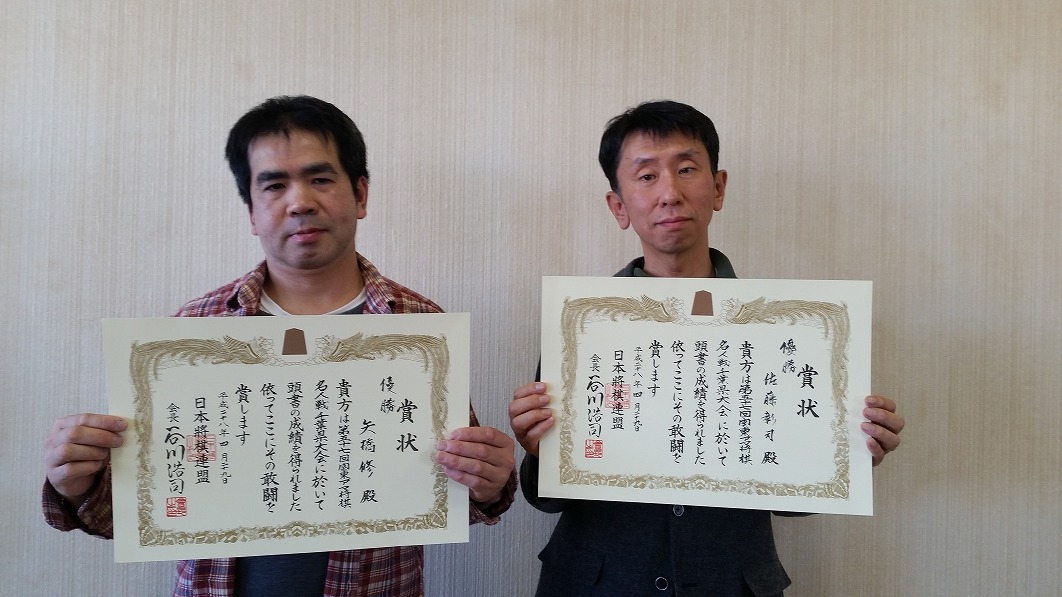 賞状
優勝
矢橋修 殿
貴方は第五十七回関東アマ将棋
名人戦千葉県大会に於いて
頭書の成績を得られました
依ってここにその敢闘を
賞します
平成二十八年 四月二十九日
日本将棋連盟
会長 谷川浩司
賞状
優勝
佐藤彰司 殿
貴方は第五十七回関東アマ将棋
名人戦千葉県大会に於いて
頭書の成績を得られました
依ってここにその敢闘を
賞します
平成二十八年 四月二十九日
日本将棋連盟
会長 谷川浩司